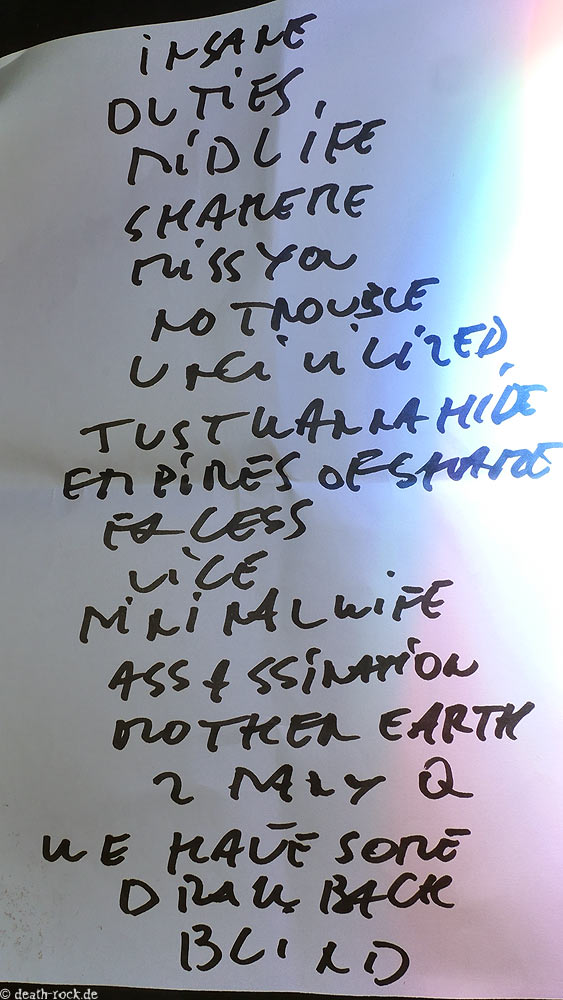 INSANE
DUTIES,
MIDLIFE
SHAREME
MISS YOU
NO TROUBLE
UNCIVILIZED,
JUST WANNA HIDE
EMPIRES OF SHAME
FACLESS
VICE
MINIMAL WIFE
ASSASSINATION
MOTHER EARTH
2 MANY Q
WE HAVE SOME
DRAWBACK
BLIND
© death-rock.de